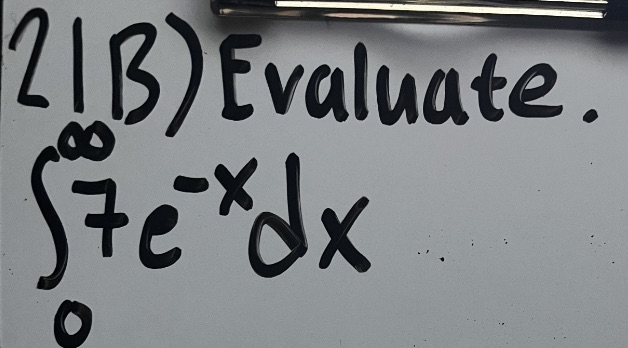 21B) Evaluate.
∫₀^∞ 7e^-x dx